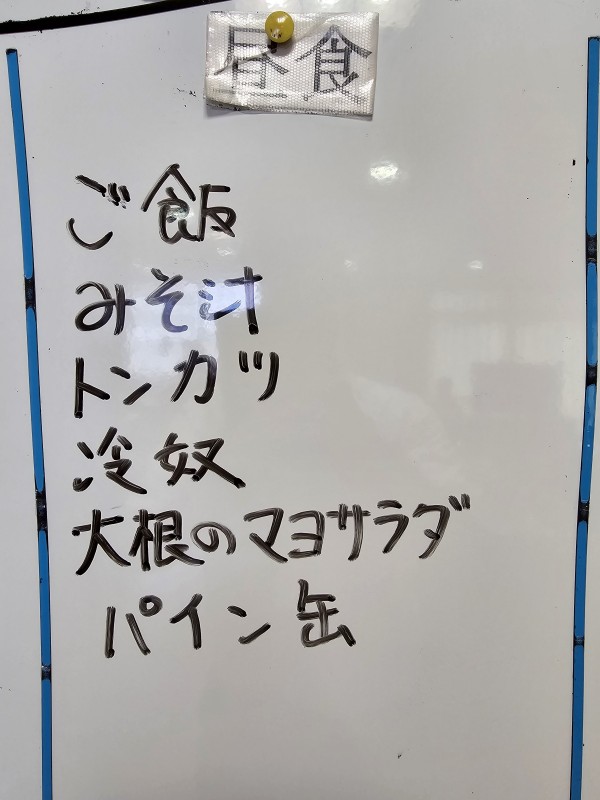 昼食
ご飯
みそ汁
トンカツ
冷奴
大根のマヨサラダ
パイン缶